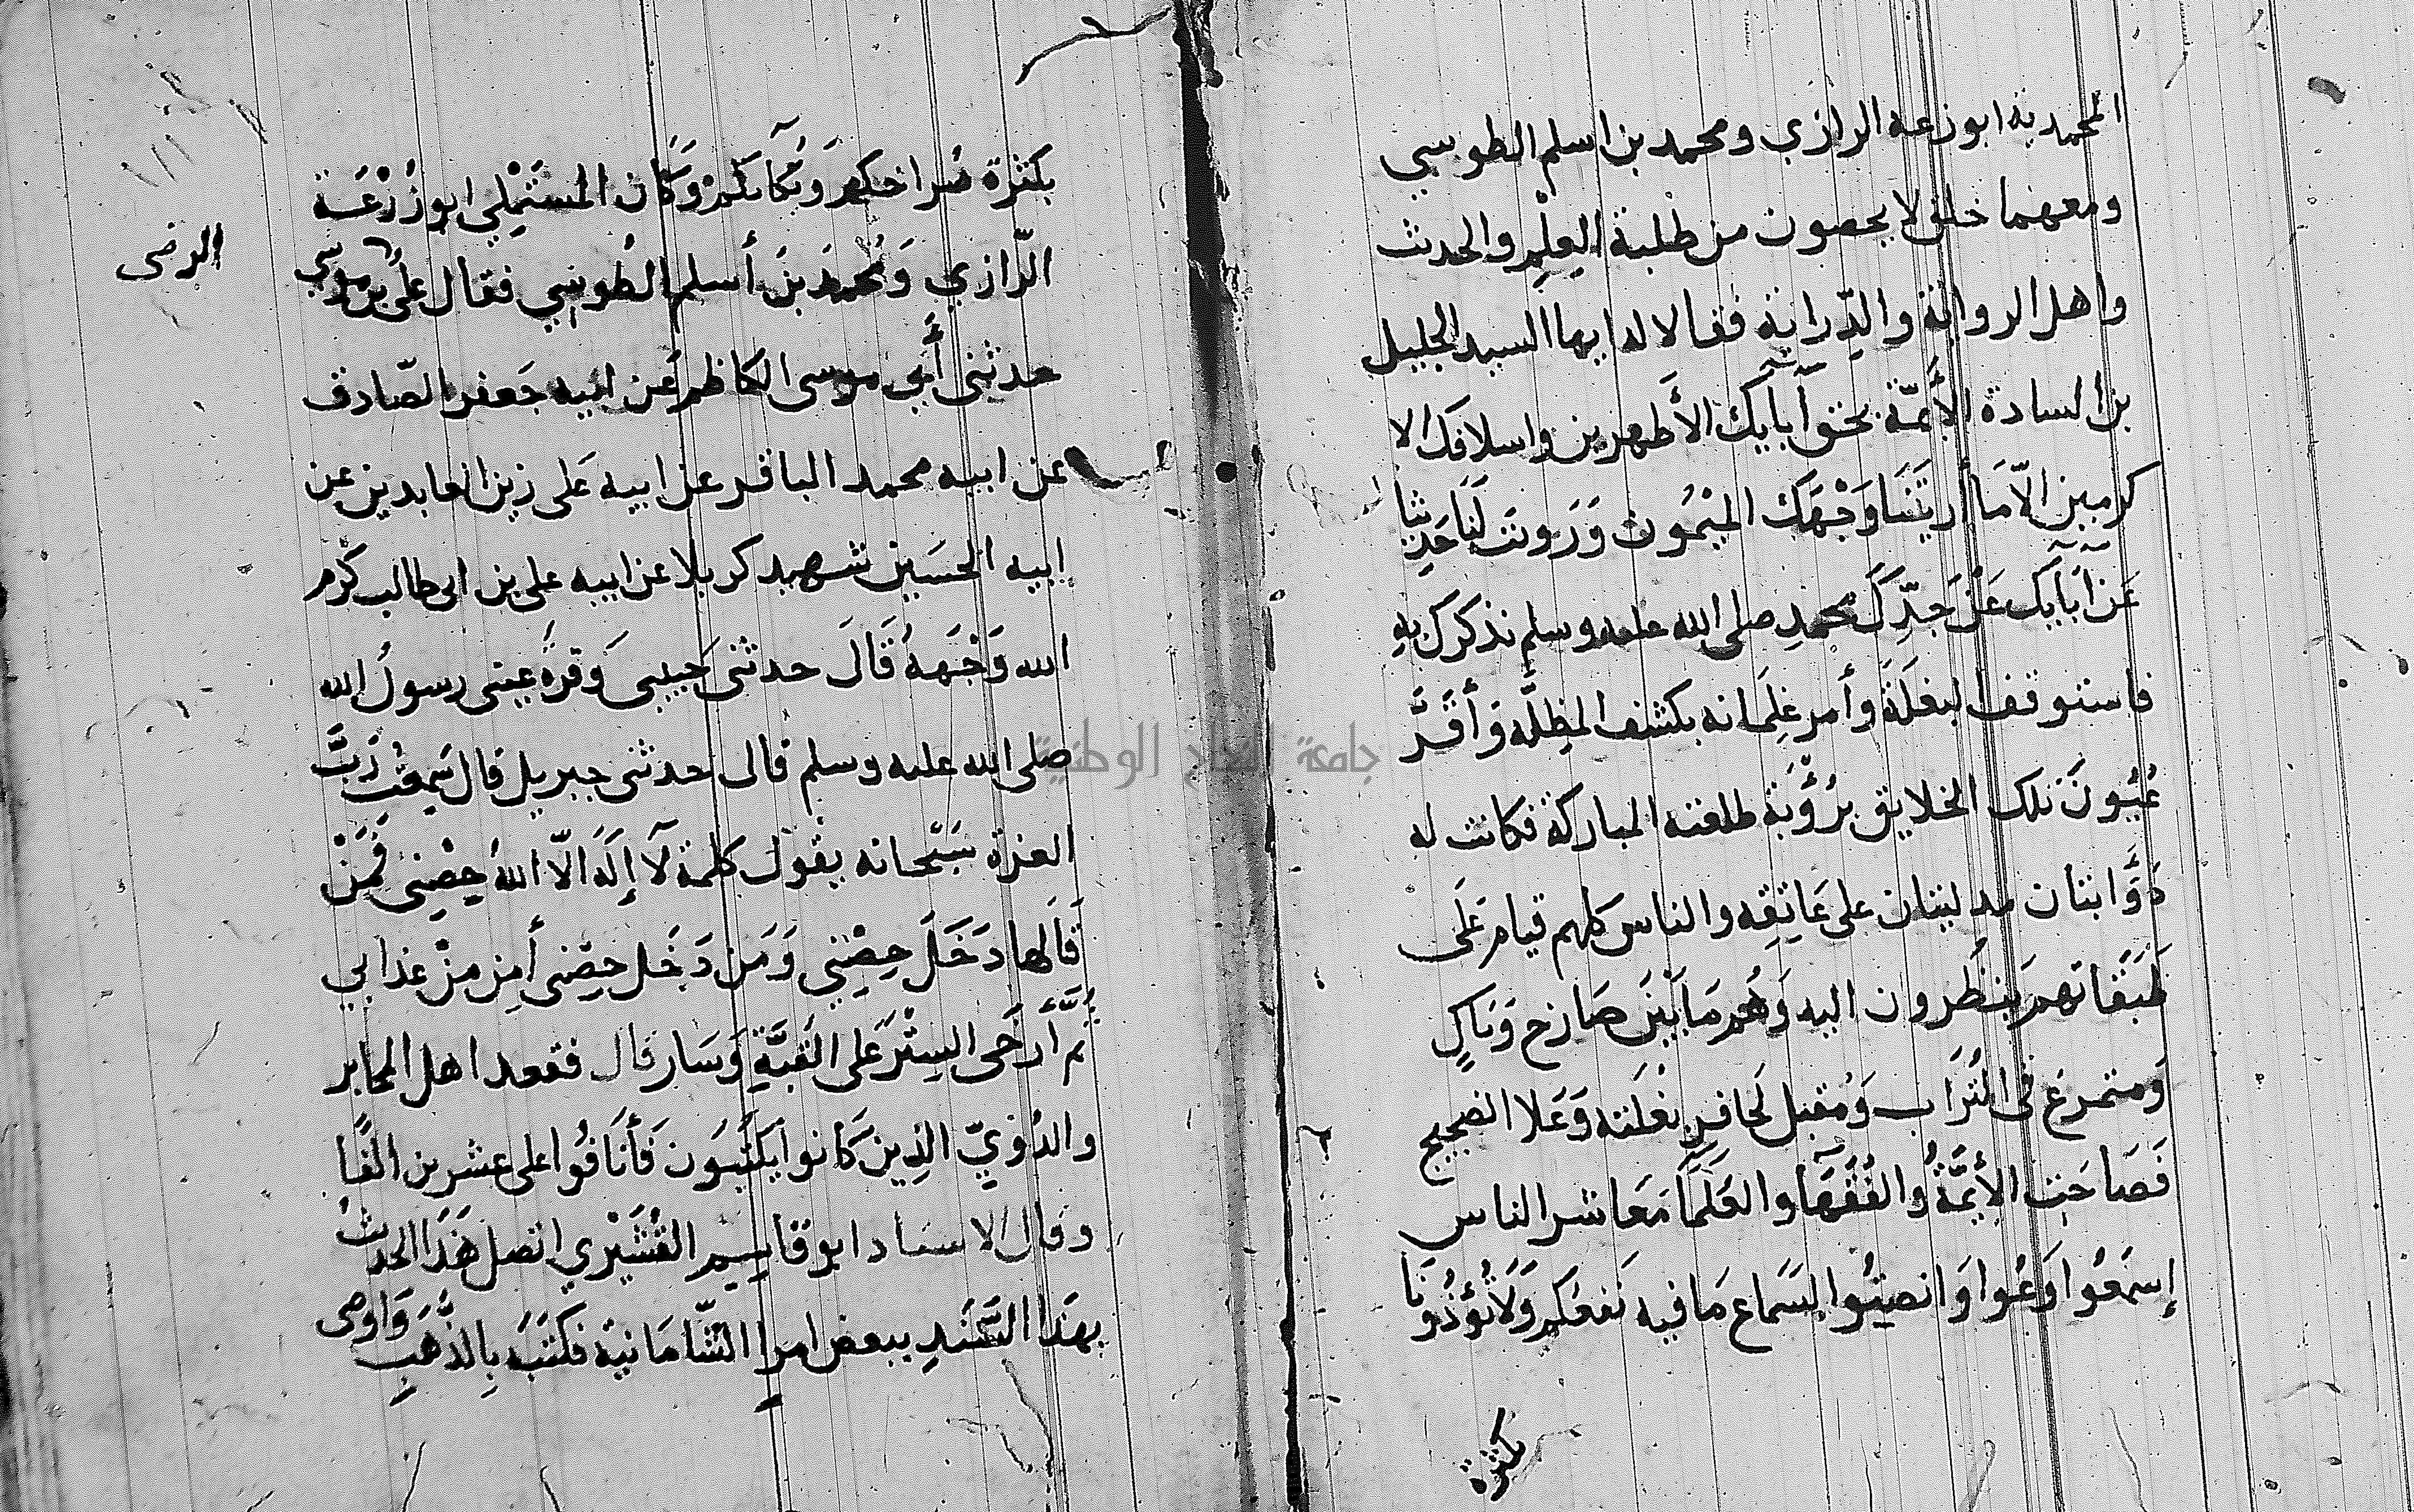 المحمديه ابوزعه الرازي ومحمد بن اسلم الطوسي
ومعهما خلق لا يحصون من طلبة العِلْمِ والحديث
واهل الرواية والدِّراية فقالا له ايها السيد الجليل
بن السادة الأَيمّة بحق آبآيك الأَطهرين واسلافك الا
كرمين الاّ مَا أريتَنَا وَجْهَكَ الميْمُون وَرَويت لَنَا حَدِيثا
عَن آبَآيِك عَنْ جَدِّكَ محمدٍ صلى الله عليه وسلم نذكرك بهِ
فاستوقف البغلَةَ وأمر غِلمَانه بكشف المظِلَّه وَأقَرَّ
عُيُونَ تلك الخلايق برُؤْيَة طلعته المباركة فكانت له
ذؤَابتان مدليتان على عَاتِقِه والناس كلهم قيام عَلَى
طَبَقَاتهم يَنظُرون اليه وَهُم مَا بَيْنَ صَارخ وَبَاكٍ
وَمتمرغ فى التُرَاب وَمُقبل لحَافرِ بغْلَته وَعَلا الضجيج
فَصَاحَتِ الأيمَّةُ وَالفُقَهَآ والعُلَمَا مَعَاشر الناس
إِسمَعُوا وَعُوا وَانصِتُوا لِسَمَاع مَا فيه نَفعكم وَلَا تُؤذُونَا
بكثرة
بكَثرَة صُراخكم وَبُكَآئكُم وَكَان المُستَمْلِى ابو زُرْعَة
الرّازي وَمُحمد بنُ أسلم الطُوسِي فقال عَلىُ بن موسى
الرضى
حدثنى أَبِي موسى الكاظم عَن ابيه جَعفر الصّادق
عن ابيه محمد الباقر عن ابيه عَلى زين العابدين عن
ابيه الحسَين شهيد كربلا عن ابيه على بن ابى طالب كرم
الله وَجْهَهُ قَالَ حدثنى حَبيبى وَقرةُ عينى رسولُ الله
صلى الله عليه وسلم قال حدثنى جبريل قال سَمِعْتُ رَبَّ
العزة سُبْحانه يقول كلمة لآ إِلَهَ الاّ اللهُ حِصْنِى فَمَنْ
قَالها دَخَلَ حِصْنِي وَمَن دَخَل حِصْنى أمِن مِنْ عَذابي
ثُمَّ أَرْخَى السِتْرَ عَلى القُبَّةِ وَسَار قال فقعد اهل المحابر
والدُوِيّ الذِين كَانوا يَكتُبُونَ فَأَنَافُوا على عشرين الفًا
وقال الاستاد ابو قاسِم القُشَيْري اتصل هَذَا الحديثُ
بهَذا السَّنَدِ ببعض امرا السّامَانية فكتَبَه بِالذَّهَبِ وَاوصى
جامعة النجاح الوطنية